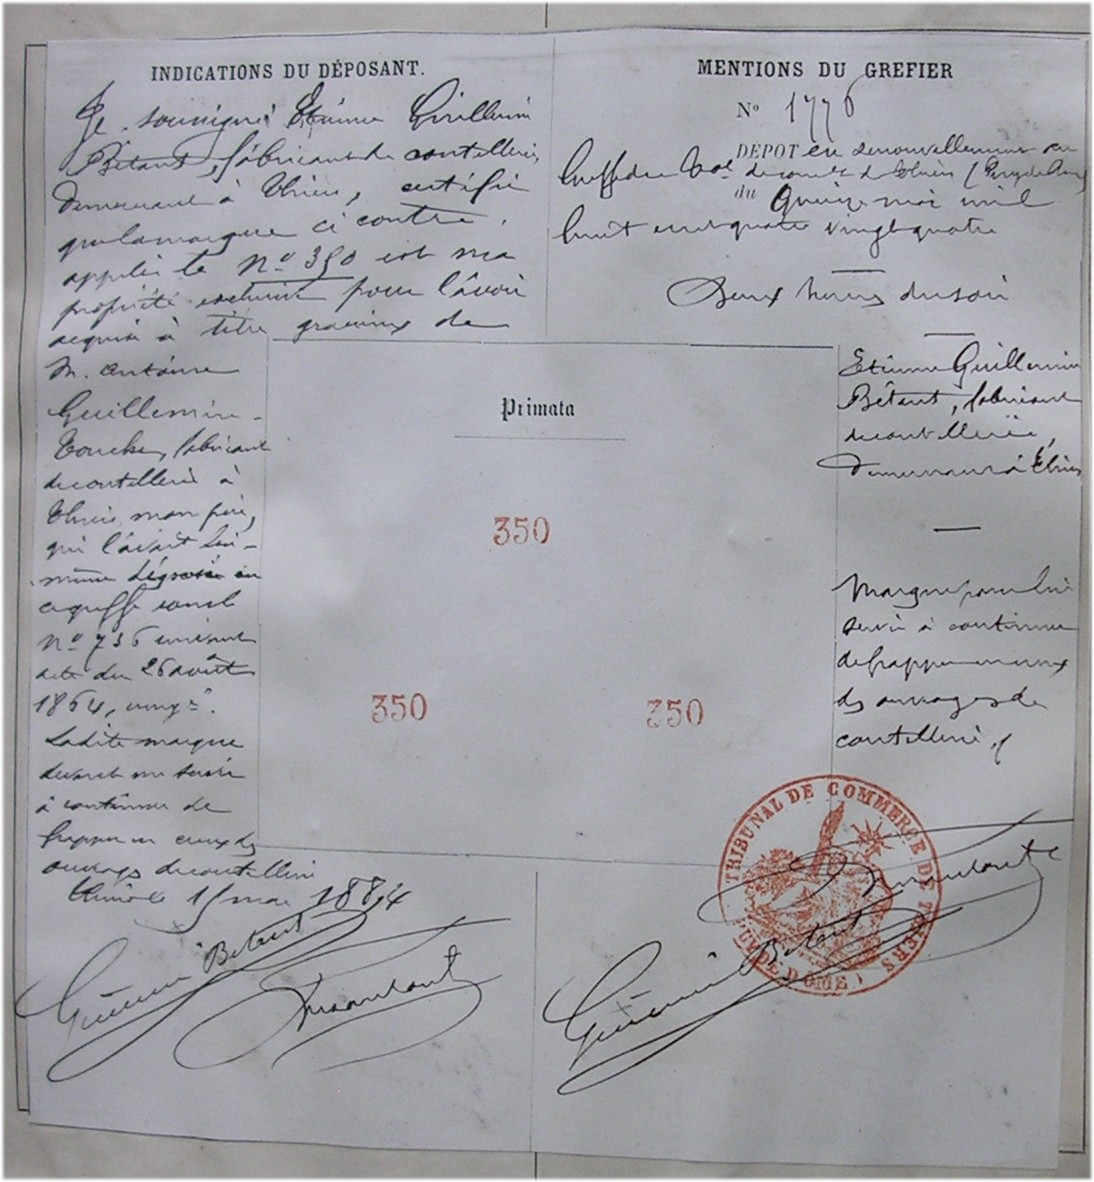 INDICATIONS DU DÉPOSANT.
Je soussigné Etienne Guillemin
Bétant, fabricant de coutellerie,
demeurant à Thiers, certifie
que la marque ci contre,
appelée le Nº 350 est ma
propriété exclusive pour l'avoir
acquise à titre gracieux de
M. Antoine
Guillemin-
Touche, fabricant
de coutellerie à
Thiers, mon père,
qui l'avait lui-
même déposée au
greffe sous le
nº 736 suivant
acte du 26 août
1864,
Ladite marque
devant me servir
à continuer de
frapper en creux des
ouvrages de coutellerie
Thiers le 15 mai 1884
Guillemin Bétant
MENTIONS DU GREFIER
Nº 1776
DÉPOT en renouvellement au
Greffe du Bal de commerce de Thiers (Puy de Dôme)
du Quinze mai mil
huit cent quatre vingt quatre
Deux heures du soir
Etienne Guillemin
Bétant, fabricant
de coutellerie,
demeurant à Thiers
Marque pour lui
servir à continuer
de frapper en creux
des ouvrages de
coutellerie
Primata
350
350
350
TRIBUNAL DE COMMERCE DE THIERS
(PUY DE DÔME)
Guillemin Bétant